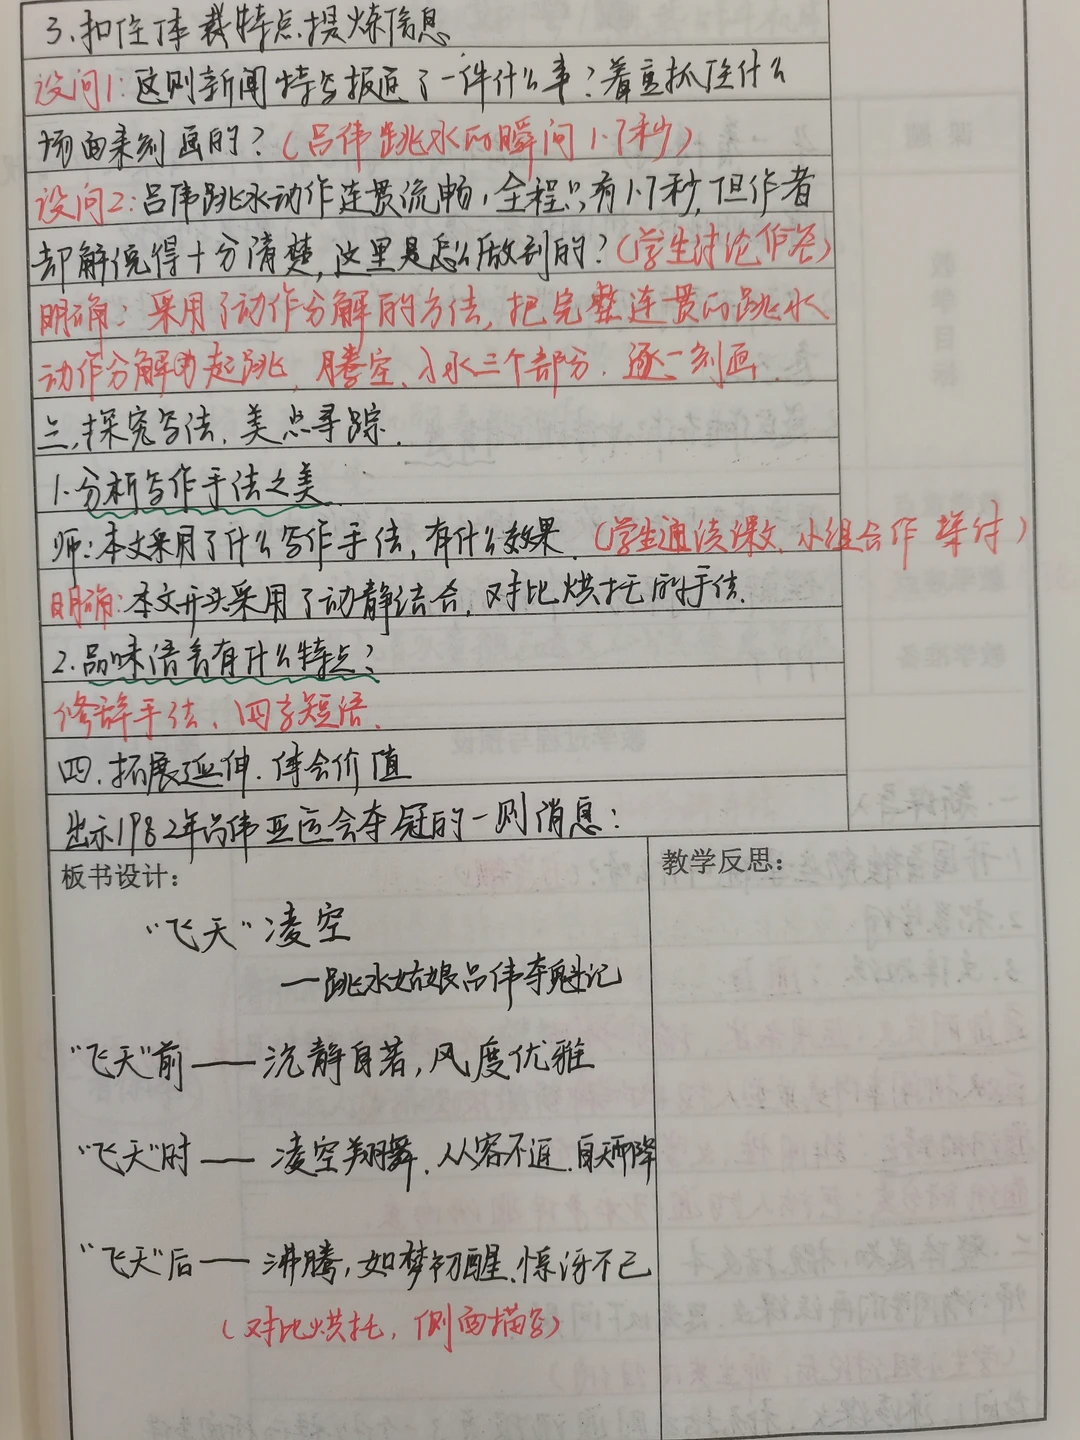 3.扣住体裁特点,提炼信息
设问1:这则新闻特写报道了一件什么事?着重抓住什么
场面来刻画的?(吕伟跳水的瞬间1.7秒)
设问2:吕伟跳水动作连贯流畅,全程只有1.7秒,但作者
却解说得十分清楚,这里是怎么做到的?(学生讨论作答)
明确:采用了动作分解的方法,把完整连贯的跳水
动作分解为起跳、腾空、入水三个部分,逐一刻画.
三,探究写法,美点寻踪.
1.分析写作手法之美
师:本文采用了什么写作手法,有什么效果.(学生通读课文,小组合作探讨)
明确:本文开头采用了动静结合,对比烘托的手法.
2.品味语言有什么特点?
修辞手法,四字短语.
四.拓展延伸.体会价值
出示1982年吕伟亚运会夺冠的一则消息:
板书设计:
教学反思:
“飞天”凌空
—跳水姑娘吕伟夺魁记
“飞天”前——沉静自若,风度优雅
“飞天”时——凌空翔舞,从容不迫,自天而降
“飞天”后——沸腾,如梦初醒,惊讶不已
(对比烘托,侧面描写)